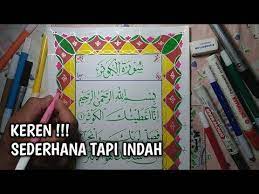 سورة الكوثر
بسم الله الرحمن الرحيم
انا اعطينك الكوثر
فصل
KEREN !!!
SEDERHANA TAPI INDAH